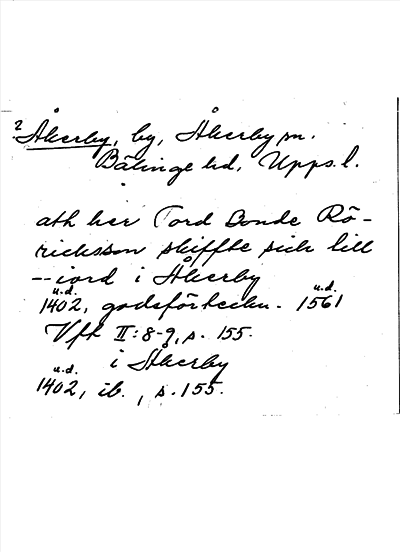 ? Åkerby, by, Åkerby sn.
Bälinge hd, Upps. l.
ath her Tord Bonde Rö-
ricksson skiffte sich till
-- iord i Åkerby
u.d. u.d.
1402, godsförteckn. 1561
Vfk II:8-9, s. 155.
i Åkerby
u.d.
1402, ib., s. 155.